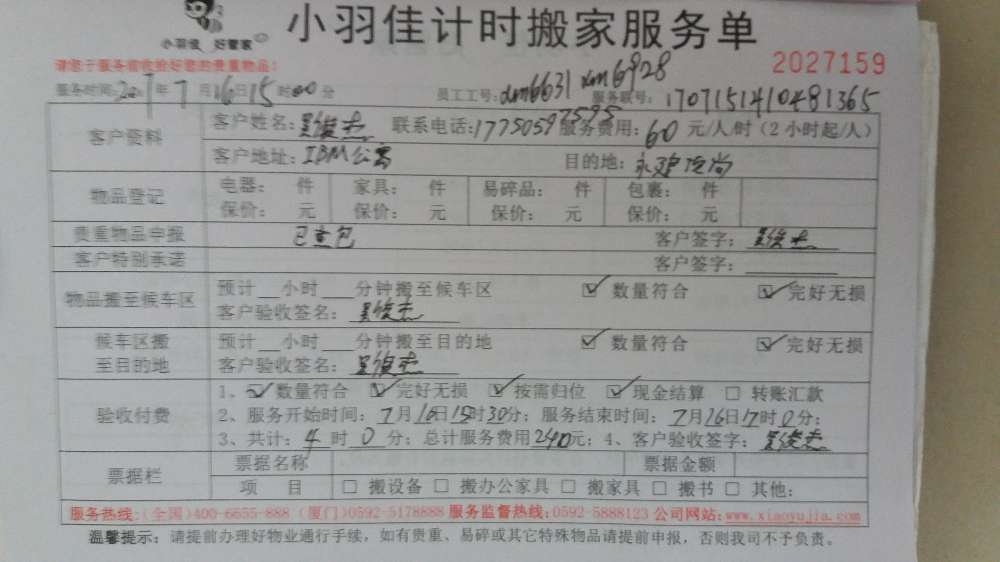 小羽佳 好管家
小羽佳计时搬家服务单
请您于服务前收验好您的贵重物品！
2027159
服务时间：2017年7月16日15时00分 员工工号：xm6631 xm6928 服务联号：1707151410481365
客户资料
客户姓名：吴俊杰 联系电话：17750597595 服务费用：60元/人/时（2小时起/人）
客户地址：IBM公寓 目的地：
物品登记
电器： 件 家具： 件 易碎品： 件 包裹： 件
保价： 元 保价： 元 保价： 元 保价： 元
贵重物品申报 已查包 客户签字：吴俊杰
客户特别承诺 客户签字：
物品搬至候车区
预计__小时___分钟搬至候车区 ☑ 数量符合 ☑ 完好无损
客户验收签名：吴俊杰
候车区搬至目的地
预计__小时___分钟搬至目的地 ☑ 数量符合 ☑ 完好无损
客户验收签名：吴俊杰
验收付费
1、☑ 数量符合 ☑ 完好无损 ☑ 按需归位 ☑ 现金结算 □ 转账汇款
2、服务开始时间：7月16日15时30分；服务结束时间：7月16日17时0分；
3、共计：4时0分；总计服务费用240元；4、客户验收签字：吴俊杰
票据栏
票据名称 票据金额
项 目 □ 搬设备 □ 搬办公家具 □ 搬家具 □ 搬书 □ 其他：
服务热线：(全国)400-6655-888 (厦门)0592-5178888 服务监督热线：0592-5888123 公司网站：www.xiaoyujia.com
温馨提示：请提前办理好物业通行手续，如有贵重、易碎或其它特殊物品请提前申报，否则我司不予负责。